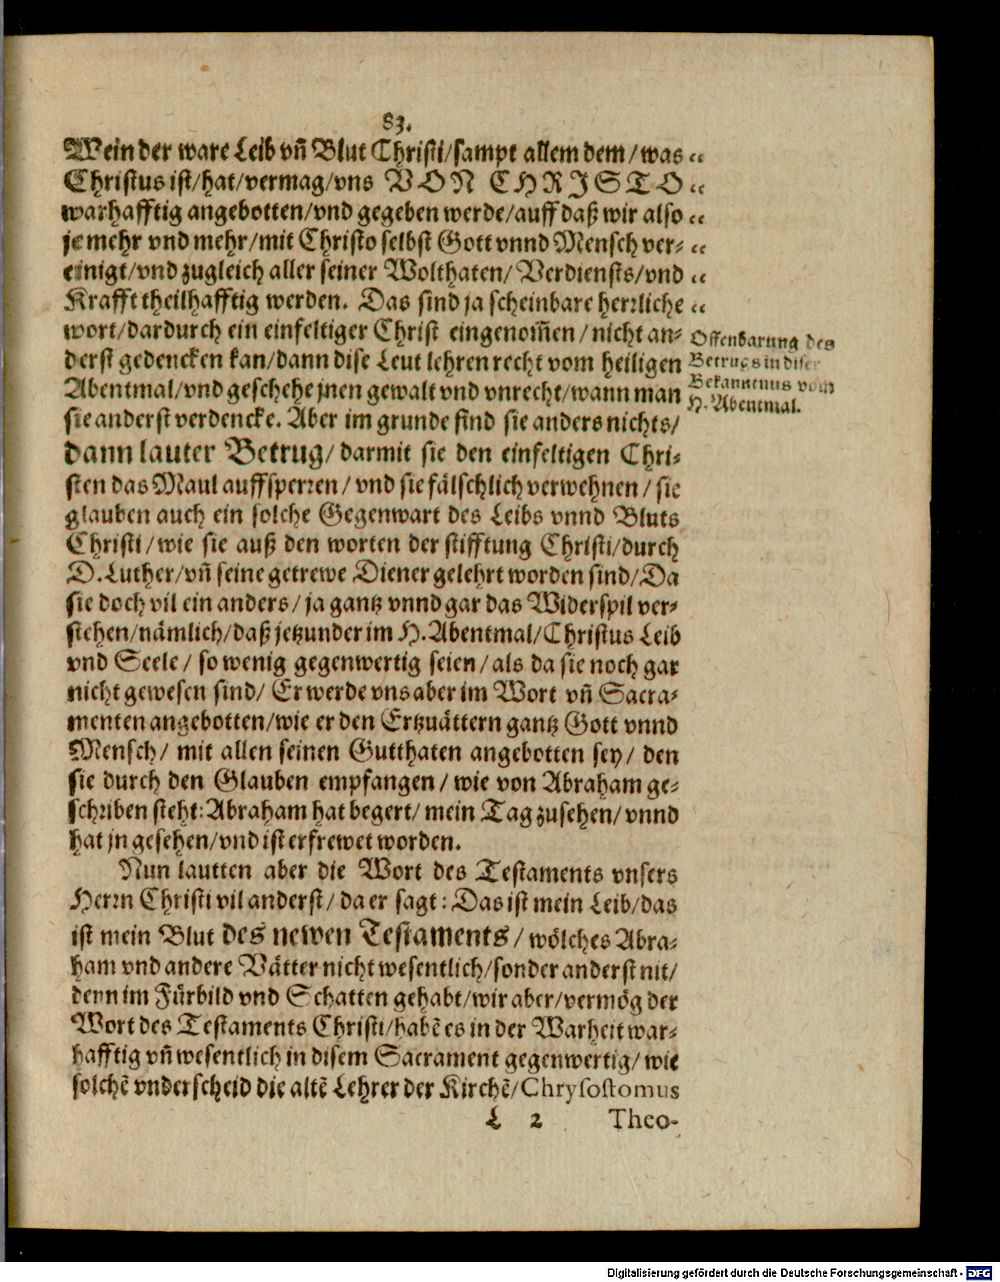 83.
Wein der ware Leib vñ Blut Christi/sampt allem dem/was „
Christus ist/hat/vermag/vns VON CHRISTO „
warhafftig angebotten/vnd gegeben werde/auff daß wir also „
je mehr vnd mehr/mit Christo selbst Gott vnnd Mensch ver- „
einigt/vnd zugleich aller seiner Wolthaten/ Verdiensts/vnd „
Krafft theilhafftig werden. Das sind ja scheinbare herrliche „
wort/dardurch ein einfeltiger Christ eingenom̃en/nicht an-
derst gedencken kan/dann dise Leut lehren recht vom heiligen
Abentmal/vnd geschehe jnen gewalt vnd vnrecht/wann man
sie anderst verdencke. Aber im grunde sind sie anders nichts/
Offenbarung des
Betrugs in diser
Bekanntnus vom
H. Abentmal.
dann lauter Betrug/darmit sie den einfeltigen Chri-
sten das Maul auffsperren/vnd sie fälschlich verwehnen/sie
glauben auch ein solche Gegenwart des Leibs vnnd Bluts
Christi/wie sie auß den worten der stifftung Christi/durch
D. Luther/vñ seine getrewe Diener gelehrt worden sind/Da
sie doch vil ein anders/ja gantz vnnd gar das Widerspil ver-
stehen/nämlich/daß jetzunder im H. Abentmal/Christus Leib
vnd Seele/ so wenig gegenwertig seien/als da sie noch gar
nicht gewesen sind/ Er werde vns aber im Wort vñ Sacra-
menten angebotten/wie er den Ertzuättern gantz Gott vnnd
Mensch/ mit allen seinen Gutthaten angebotten sey/ den
sie durch den Glauben empfangen/ wie von Abraham ge-
schriben steht: Abraham hat begert/ mein Tag zusehen/ vnnd
hat jn gesehen/vnd ist erfrewet worden.
Nun lautten aber die Wort des Testaments vnsers
Herrn Christi vil anderst/ da er sagt: Das ist mein Leib/das
ist mein Blut des newen Testaments/ wölches Abra-
ham vnd andere Vätter nicht wesentlich/sonder anderst nit/
denn im Fürbild vnd Schatten gehabt/wir aber/vermög der
Wort des Testaments Christi/habẽ es in der Warheit war-
hafftig vñ wesentlich in disem Sacrament gegenwertig/ wie
solchẽ vnderscheid die altẽ Lehrer der Kirchẽ/Chrysostomus
L 2 Theo-
Digitalisierung gefördert durch die Deutsche Forschungsgemeinschaft - DFG